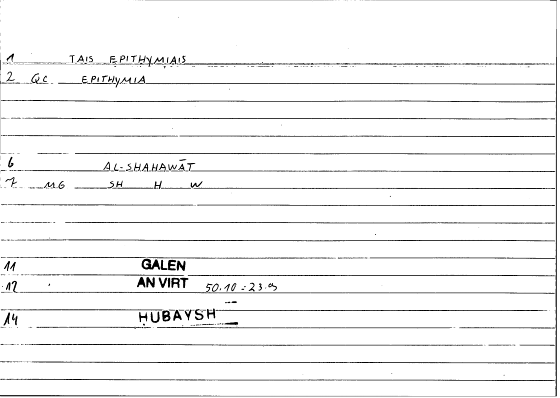 1 TAIS EPITHYMIAIS
2 QC EPITHYMIA
6 AL-SHAHAWĀT
7 MG SH H W
11 GALEN
12 AN VIRT 50.10 = 23.9
14 ḤUBAYSH